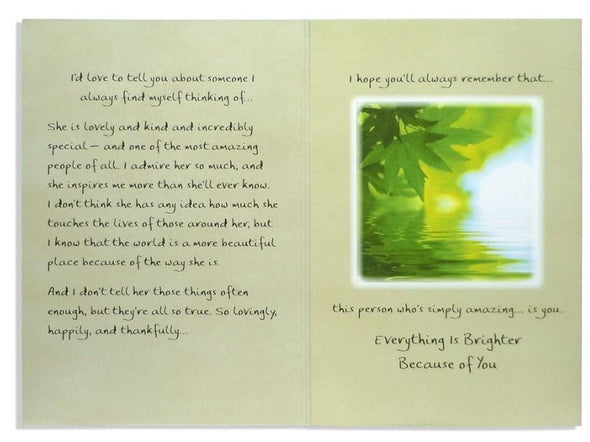 I'd love to tell you about someone I
always find myself thinking of...
She is lovely and kind and incredibly
special — and one of the most amazing
people of all. I admire her so much, and
she inspires me more than she'll ever know.
I don't think she has any idea how much she
touches the lives of those around her, but
I know that the world is a more beautiful
place because of the way she is.
And I don't tell her those things often
enough, but they're all so true. So lovingly,
happily, and thankfully...
I hope you'll always remember that...
this person who's simply amazing... is you.
Everything Is Brighter
Because of You